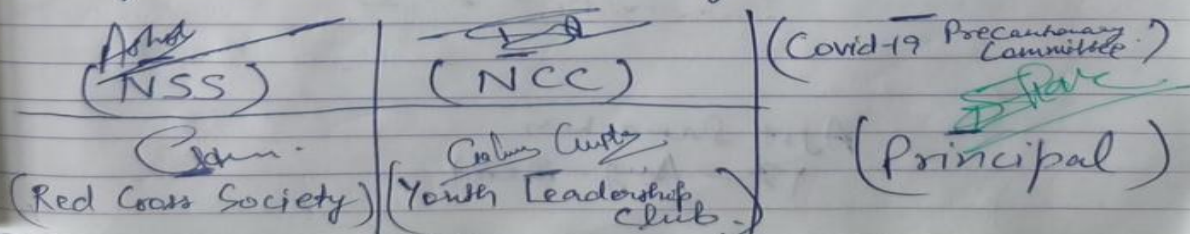 (NSS)
(NCC)
(Covid-19 Precautionary
Committee.)
(Red Cross Society)
(Youth Leadership
Club.)
(Principal)